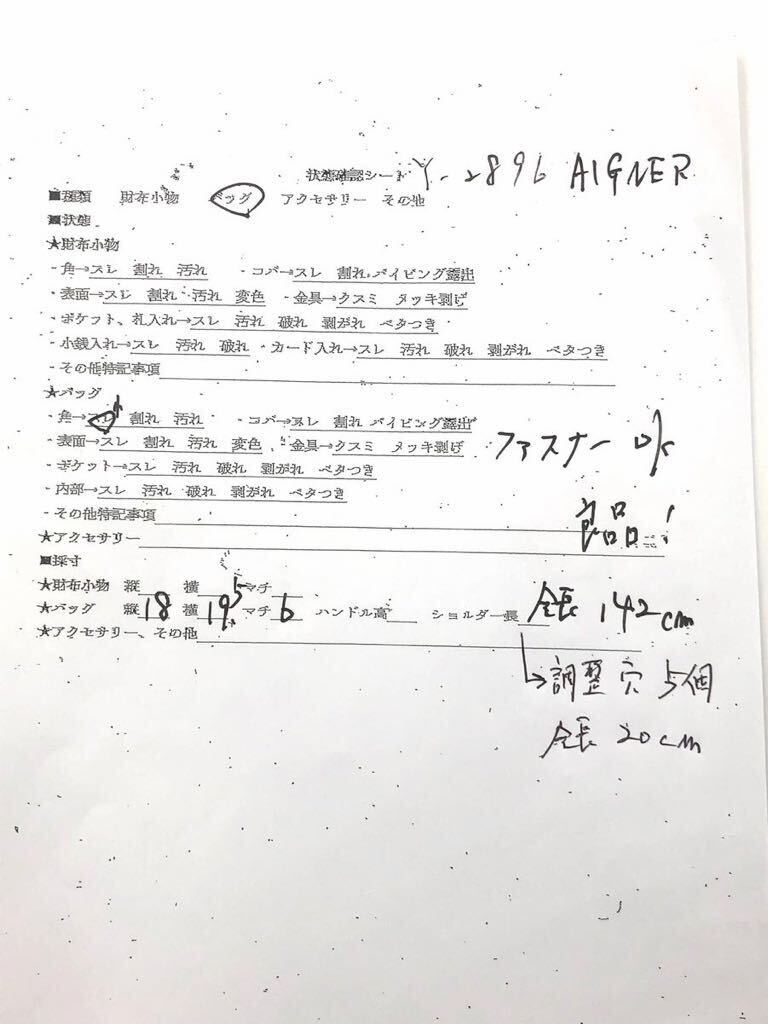 状態確認シート Y-2896 AIGNER
■種類 財布小物 バッグ アクセサリー その他
■状態
★財布小物
・角→スレ 割れ 汚れ ・コバ→スレ 割れ パイピング露出
・表面→スレ 割れ 汚れ 変色 ・金具→クスミ メッキ剥げ
・ポケット、札入れ→スレ 汚れ 破れ 剥がれ ベタつき
・小銭入れ→スレ 汚れ 破れ ・カード入れ→スレ 汚れ 破れ 剥がれ ベタつき
・その他特記事項
★バッグ
・角→スレ小 割れ 汚れ ・コバ→スレ 割れ パイピング露出
・表面→スレ 割れ 汚れ 変色 ・金具→クスミ メッキ剥げ ファスナー ok
・ポケット→スレ 汚れ 破れ 剥がれ ベタつき
・内部→スレ 汚れ 破れ 剥がれ ベタつき
・その他特記事項 良品!
★アクセサリー
■採寸
★財布小物 縦 横 マチ
★バッグ 縦18 横19.5 マチ6 ハンドル高 ショルダー長 全長 142cm
★アクセサリー、その他
→調整穴 5個
全長 20cm